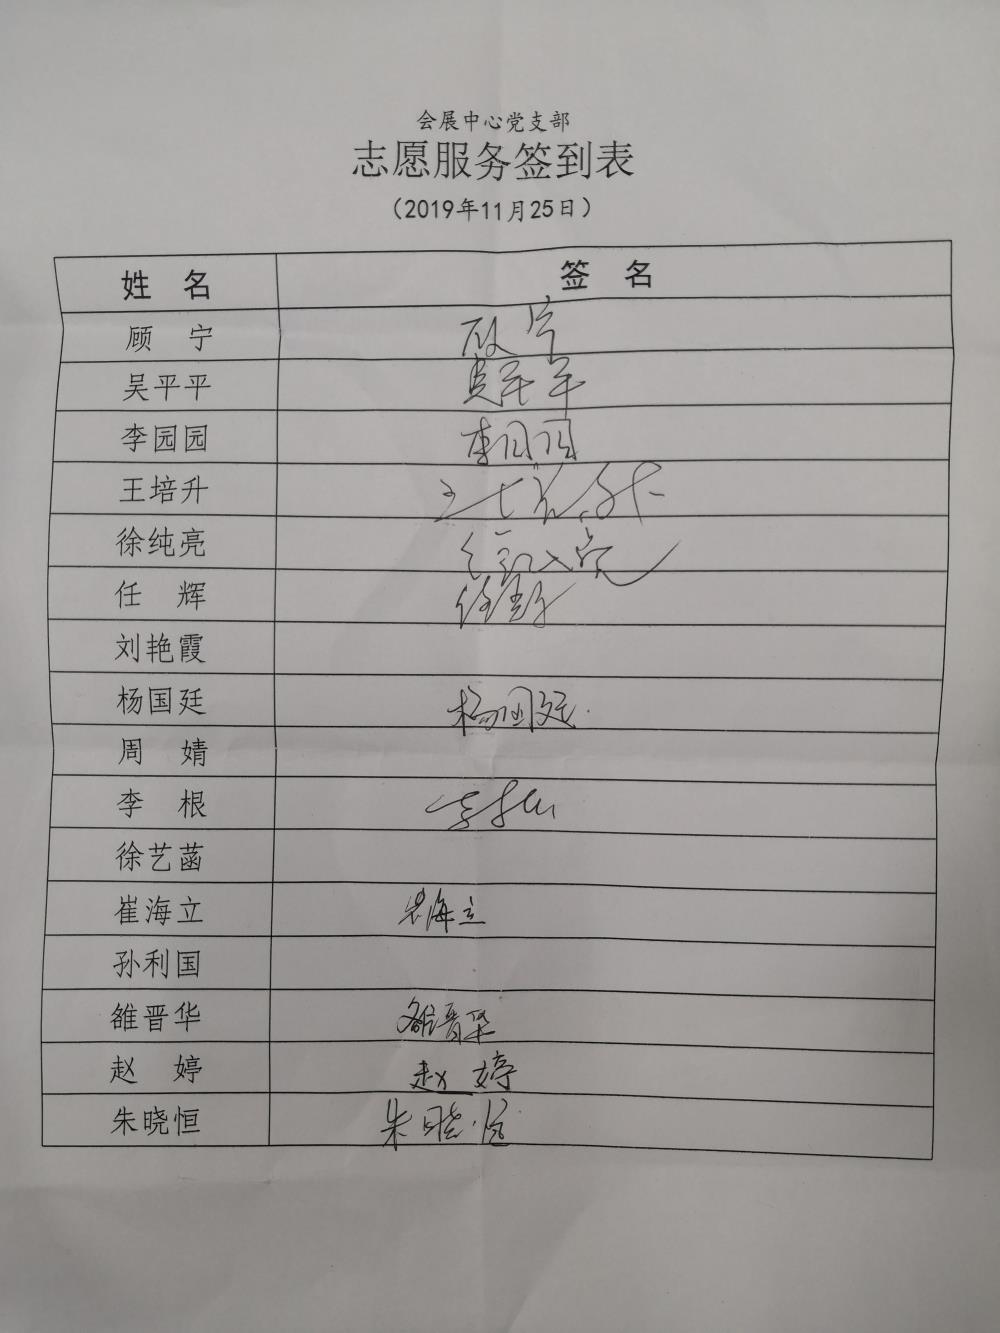 会展中心党支部
志愿服务签到表
（2019年11月25日）
姓 名 签 名
顾 宁 顾宁
吴平平 吴平平
李园园 李园园
王培升 王培升
徐纯亮
任 辉
刘艳霞
杨国廷 杨国廷
周 婧
李 根 李根
徐艺菡
崔海立 崔海立
孙利国
雒晋华 雒晋华
赵 婷 赵婷
朱晓恒 朱晓恒